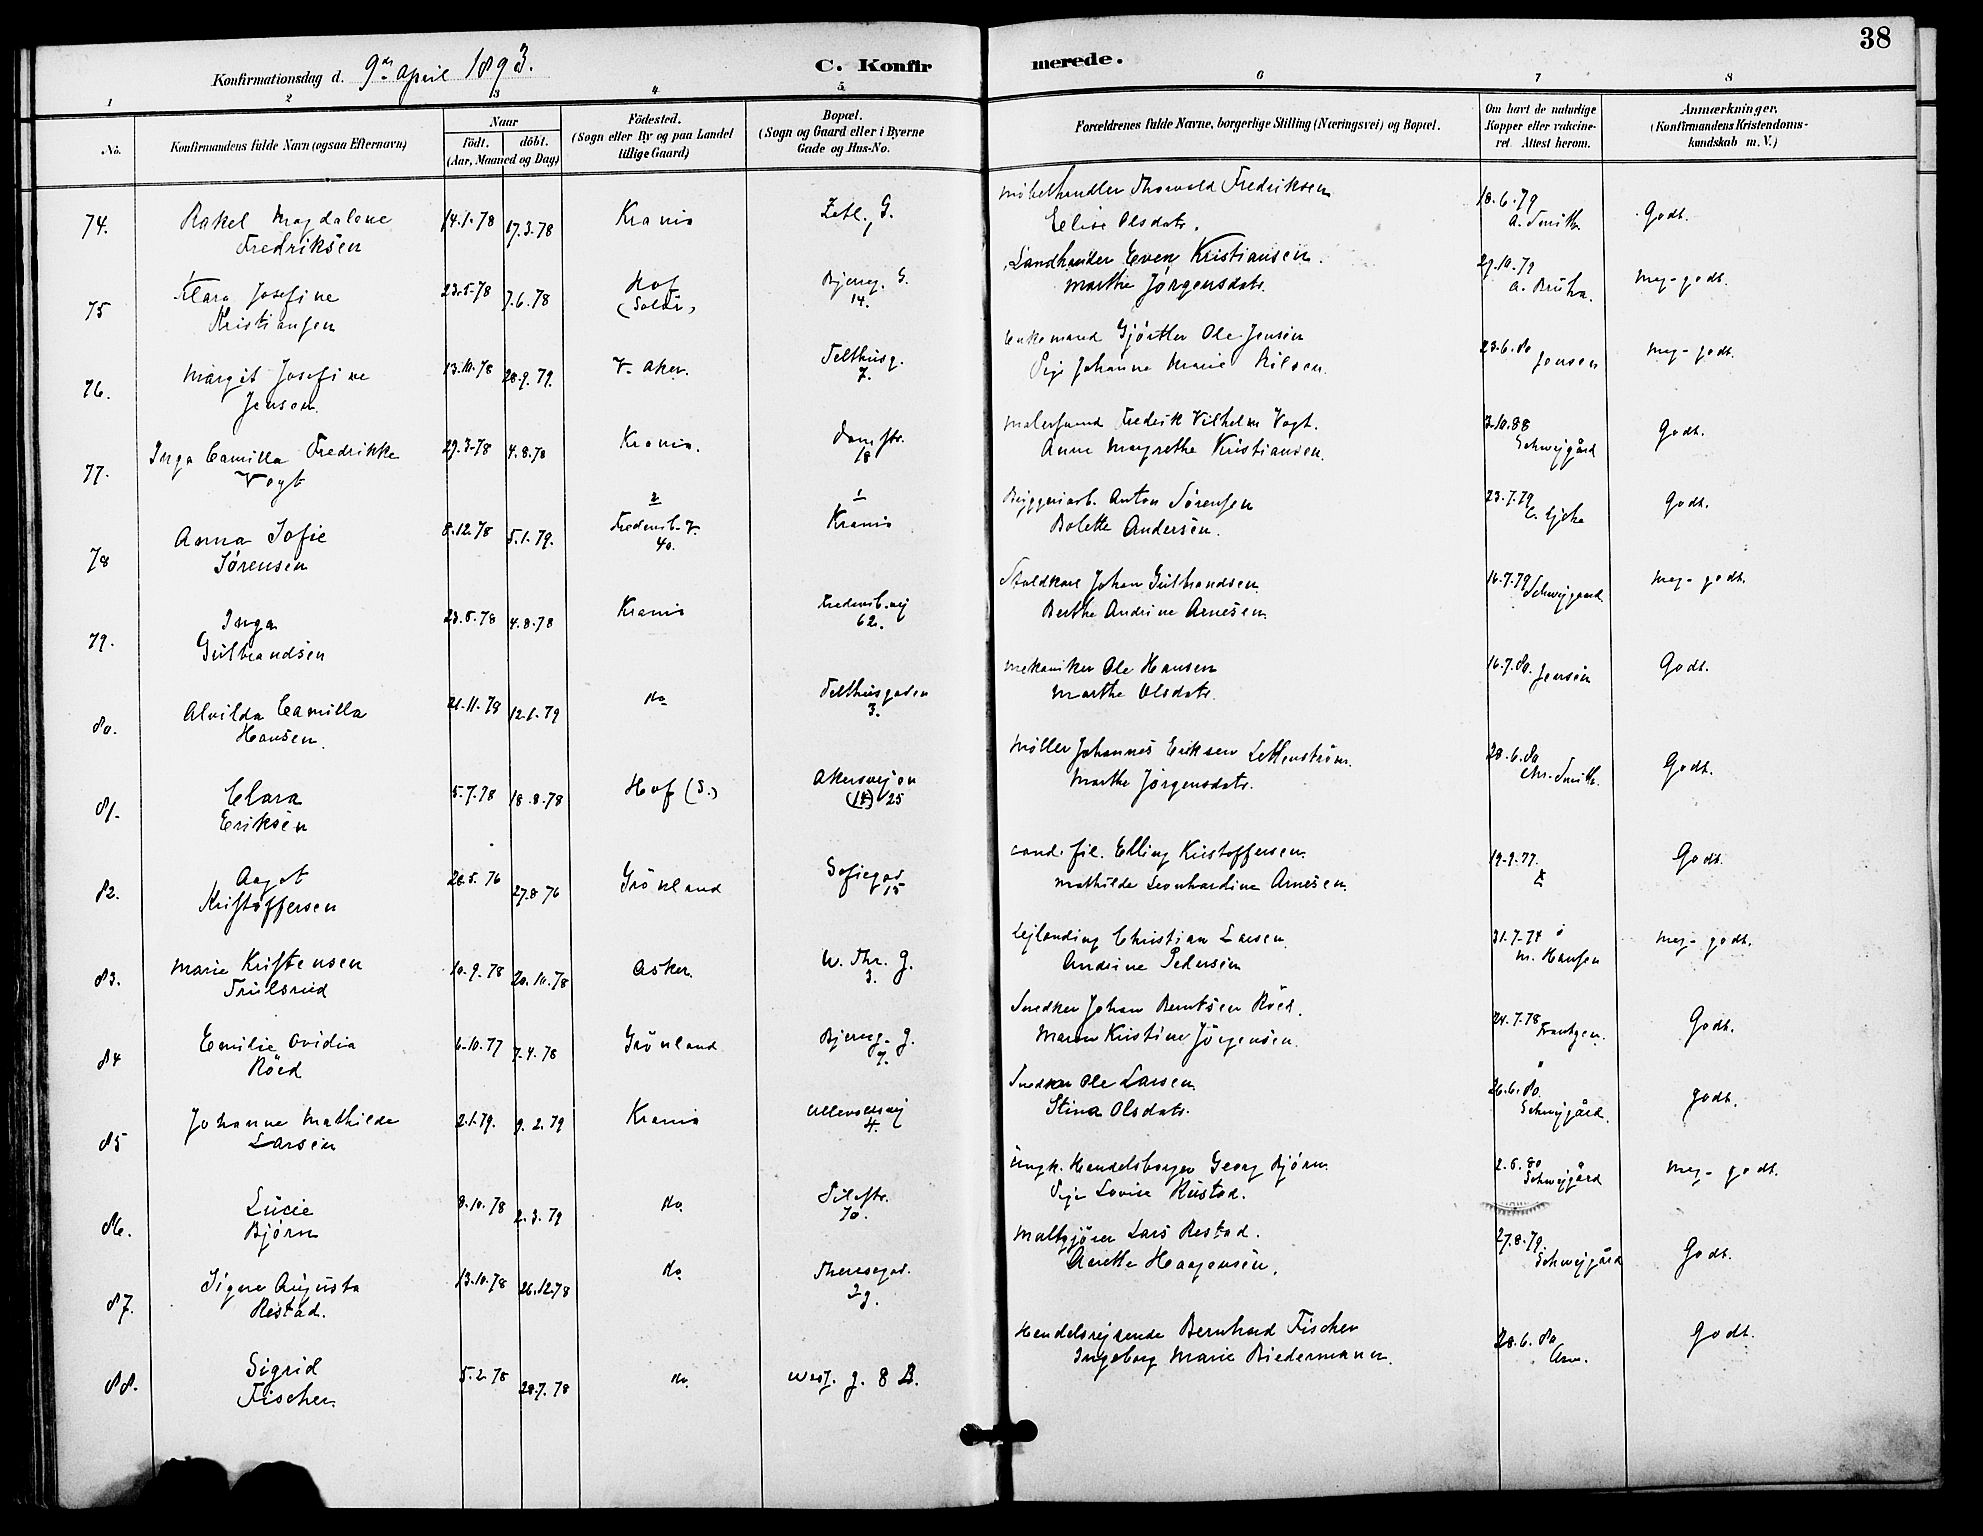 38
Konfirmationsdag d. 9de April 1893.
C. Konfirmerede.
1 2 3 4 5 6 7 8
No.
Konfirmandens fulde Navn (ogsaa Efternavn)
Naar
født. døbt.
(Aar, Maaned og Dag)
Födested.
(Sogn eller By og paa Landet
tillige Gaard)
Bopæl.
(Sogn og Gaard eller i Byerne
Gade og Hus-No.
Forældrenes fulde Navne, borgerlige Stilling (Næringsvei) og Bopæl.
Om havt de naturlige
Kopper eller vakcine-
ret. Attest herom.
Anmærkninger.
(Konfirmandens Kristendoms-
kundskab m. V.)
74. Rakel Magdalene 14.1.78 17.3.78 Krania G. Møbelhandler Thorvald Fredriksen 18.6.79 Godt.
Fredriksen Elise Olsdatr. A. Smith
75 Klara Josefine 23.5.78 7.6.78 Hof Bjerreg. G. Landhandler Even Kristiansen. 29.10.79 Meg. godt.
Kristiansen (Solør) 14. Marthe Jørgensdatr. A. Bruhn.
76. Margit Josefine 13.10.78 28.9.79. V. Aker. Telthusg. Enkemand Gjørtler Ole Jensen 23.6.80 Meg. godt.
Jensen. 7. Pige Johanne Marie Nilsen. Jensen
77. Inga Camilla Fredrikke 29.3.78 4.8.78 Krania. Damstr. Malersvend Fredrik Vilhelm Vogt. 3.10.88 Godt.
Vogt 18 Anne Margrethe Kristiansen. Schweigård
2 1
78 Anna Sofie 8.12.78 5.1.79. Fredensb. V. Krania Bryggeriarb. Anton Sørensen 23.7.79 Godt.
Sørensen 40. Bolette Andersen.
79. Inga 23.5.78 4.8.78 Krania Fredensb.vej Staldkarl Johan Gulbrandsen 16.7.79 Meg. godt.
Gulbrandsen 62. Berthe Andrine Arnesen. Schweigaard
80. Alvilda Camilla 21.11.78 12.1.79 do Telthusgaden Mekaniker Ole Hansen 16.7.80. Godt.
Hansen. 3. Marthe Olsdatr. Jensen
81. Clara 5.7.78 18.8.78 Hof (S.) Akersvejen Møller Johannes Eriksen Lettenstrøm. 28.6.80 Godt.
Eriksen (14) 25 Marthe Jørgensdatr. Chr. Smith.
82. Aagot 28.5.76 27.8.76 Grönland Sofiegad. cand. fil. Elling Kristoffersen. 19.9.77. Godt.
Kristoffersen 15 Mathilde Leonhardine Arnesen.
83. Marie Kristensen 10.9.78 20.10.78 Asker. W. Thr. G. Lejlænding Christian Larsen. 31.7.74 Meg. godt.
Trulsrud 3. Andrine Pedersen M. Hansen
84 Emilie Ovidia 6.10.77 7.4.78 Grönland Bjerreg. G. Snedker Johan Berntsen Röed. 24.7.78 Godt.
Röed 9. Maren Kristine Jörgensen. Frantzen.
85 Johanne Mathilde 2.1.79. 9.2.79 Krania Ullevoldsvej Snedker Ole Larsen 26.6.80. Godt.
Larsen 4. Stina Olsdatr. Schweigård.
86. Lucie 8.10.78 2.3.79 do Pilestr. Ungk. Handelsborger Georg Bjørn. 2.6.80 Meg. godt.
Bjørn 70. Pige Lovise Rustad. Schweigård
87. Signe Augusta 13.10.78 26.12.78 do Theresegad. Maltgjører Lars Restad. 27.8.79 Godt.
Restad. Anette Haagensen. Schweigård
88. Sigrid 5.2.78 28.7.78 do G. 8 B. Handelsrejsende Bernhard Fischer 28.6.80 Godt.
Fischer. Ingeborg Marie Biedermann.